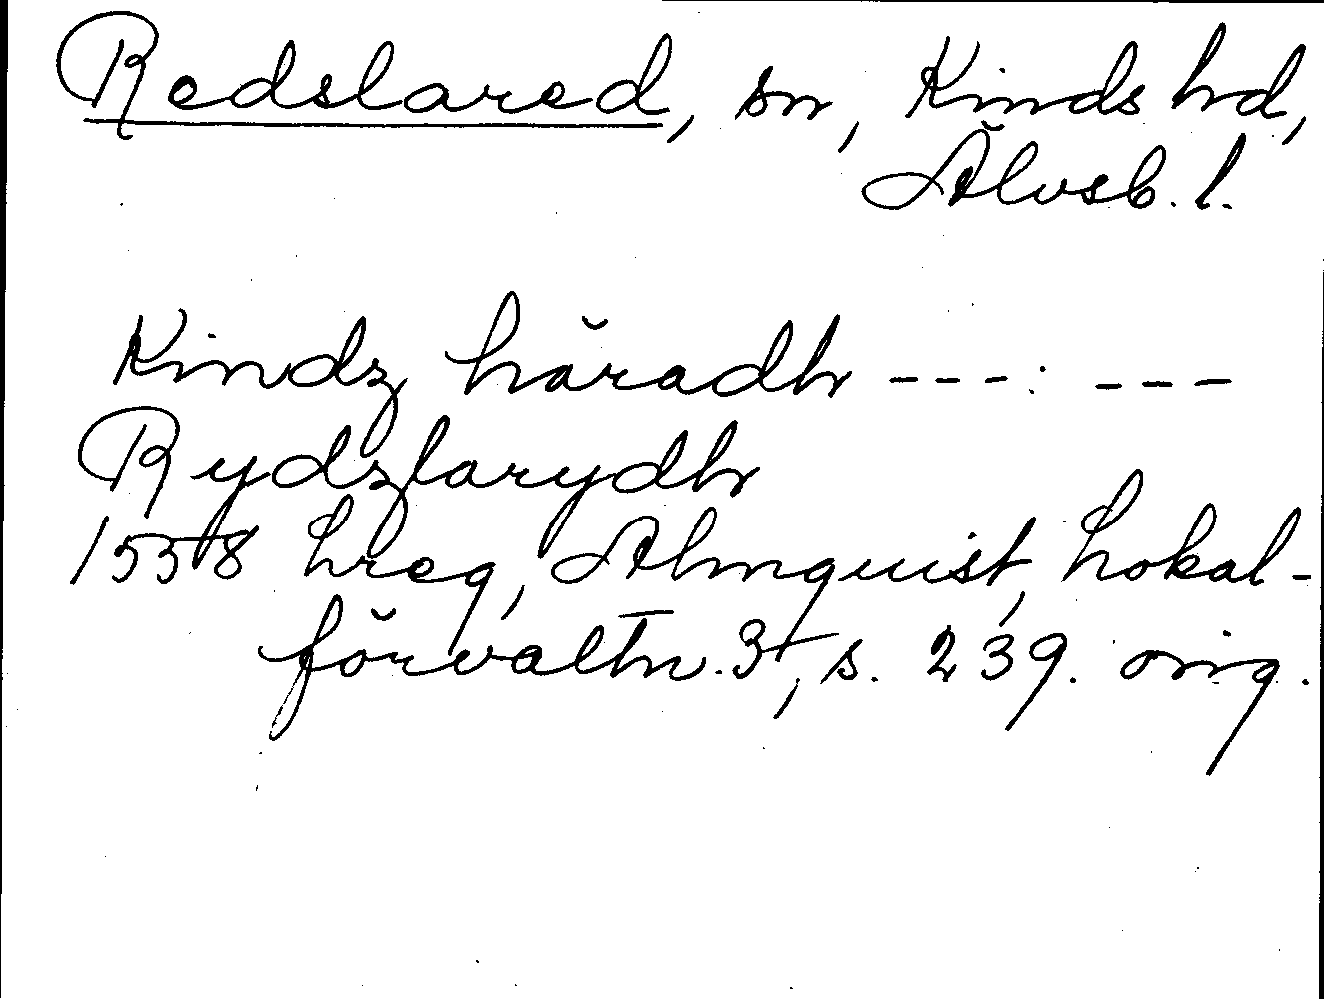 Redslared, sn, Kinds hd,
Älvsb. l.
Kindz häradh ---: ---
Rydzlarydh
1558 Lreg, Almquist, Lokal-
förvaltn. 3, s. 239. orig.